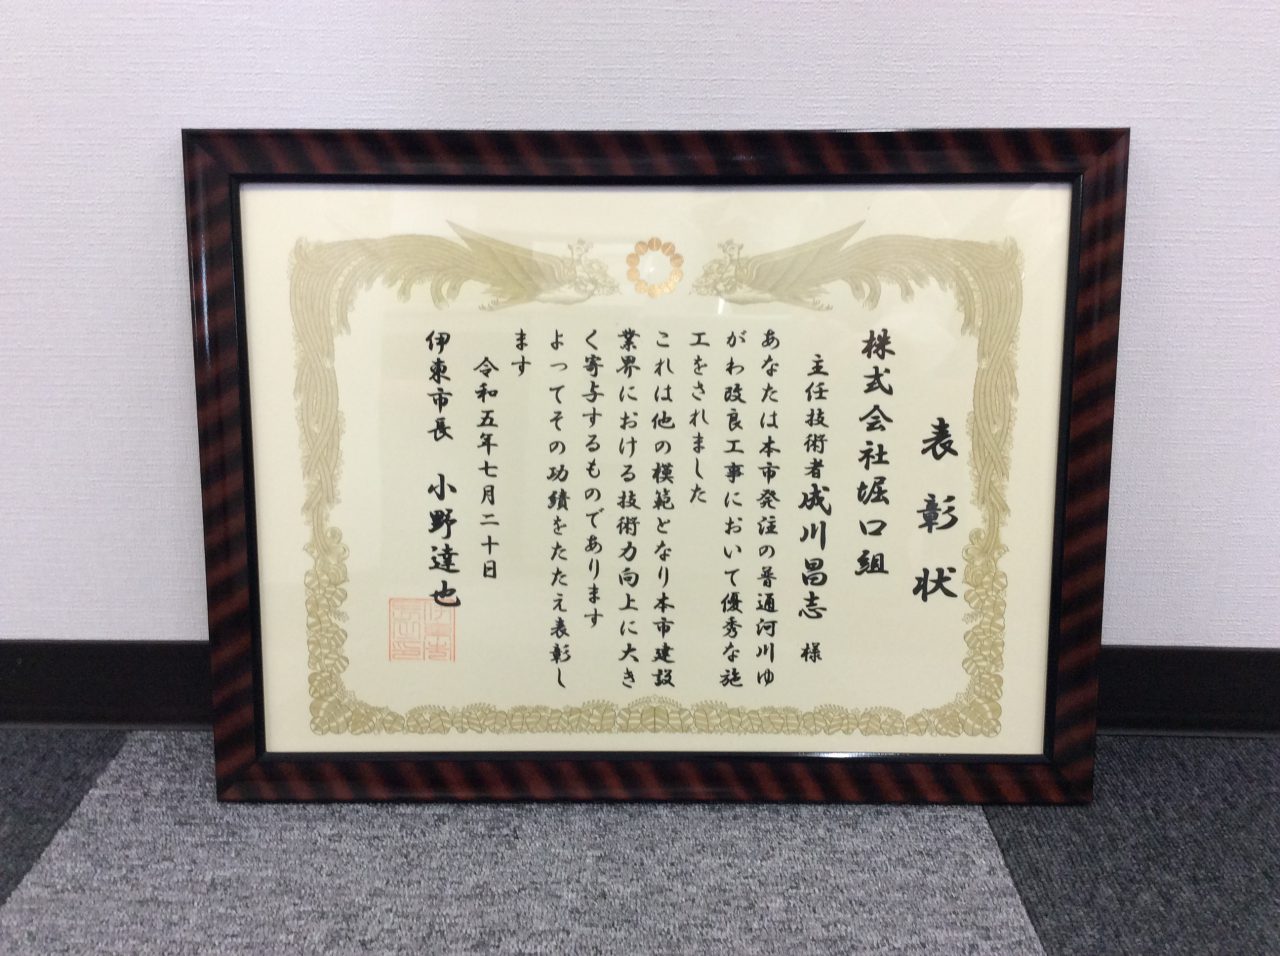 表彰状
株式会社堀口組
主任技術者成川昌志様
あなたは本市発注の普通河川ゆ
がわ改良工事において優秀な施
工をされました
これは他の模範となり本市建設
業界における技術力向上に大き
く寄与するものであります
よってその功績をたたえ表彰し
ます
令和五年七月二十日
伊東市長 小野達也